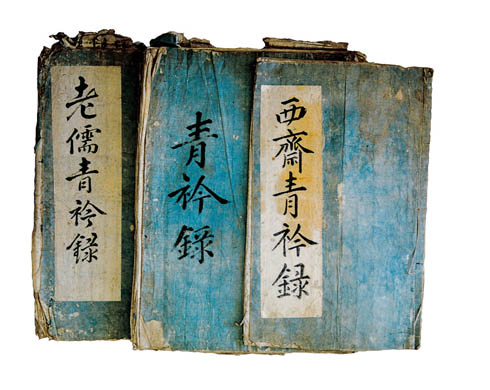 老儒青衿錄
青衿錄
西齋青衿錄